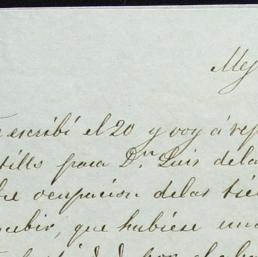 Mej
escribí el 20 y voy á rep
tillo para Dn. Luis de la
re ocupacion de las tie
cubir, que hubiese una